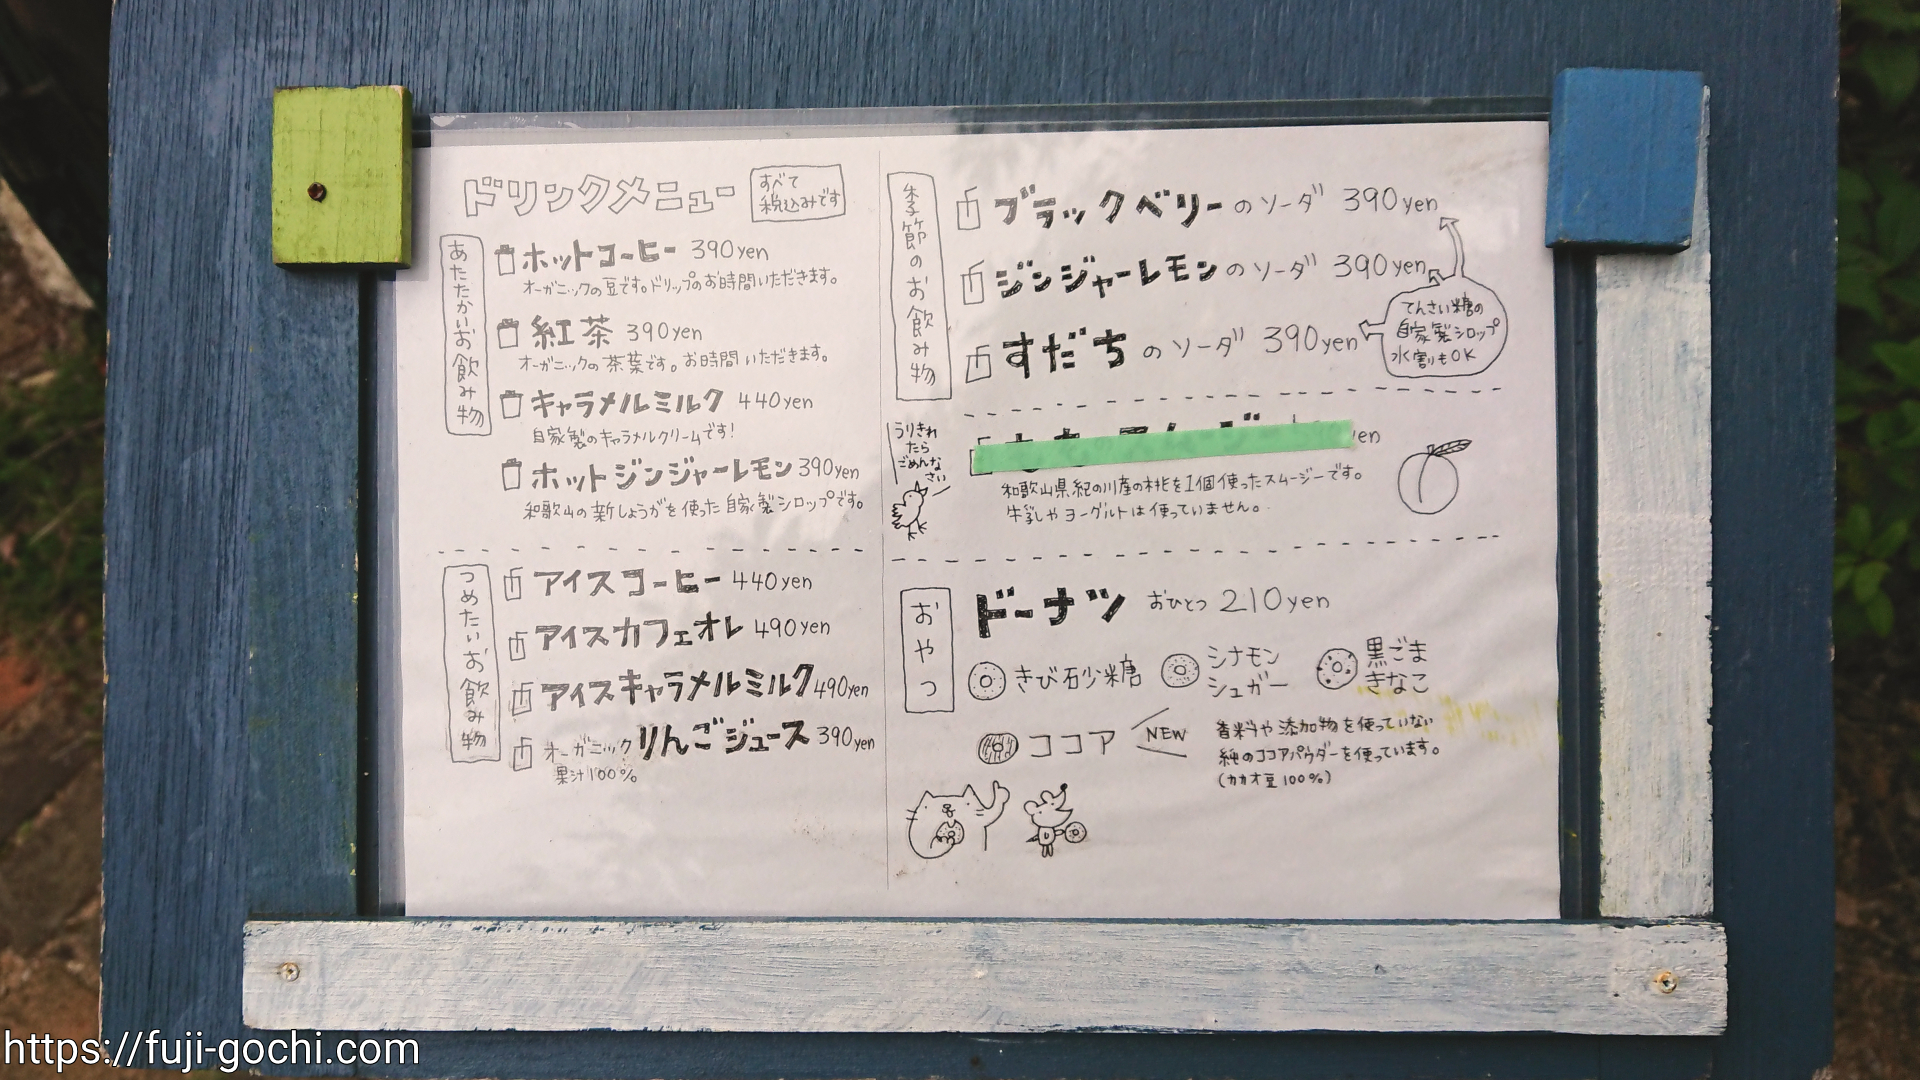 ドリンクメニュー
すべて
税込みです
あたたかいお飲み物
ホットコーヒー 390yen
オーガニックの豆です。ドリップのお時間いただきます。
紅茶 390yen
オーガニックの茶葉です。お時間いただきます。
キャラメルミルク 440yen
自家製のキャラメルクリームです!
ホットジンジャーレモン 390yen
和歌山の新しょうがを使った自家製シロップです。
つめたいお飲み物
アイスコーヒー 440yen
アイスカフェオレ 490yen
アイスキャラメルミルク 490yen
オーガニックりんごジュース 390yen
果汁100%
季節のお飲み物
ブラックベリーのソーダ 390yen
ジンジャーレモンのソーダ 390yen
すだちのソーダ 390yen
てんさい糖の
自家製シロップ
水割りもOK
うりきれ
たら
ごめんな
さい
yen
和歌山県紀の川産の桃を1個使ったスムージーです。
牛乳やヨーグルトは使っていません。
おやつ
ドーナツ おひとつ 210yen
きび砂糖
シナモン
シュガー
黒ごま
きなこ
ココア NEW
香料や添加物を使っていない
純のココアパウダーを使っています。
(カカオ豆100%)
https://fuji-gochi.com